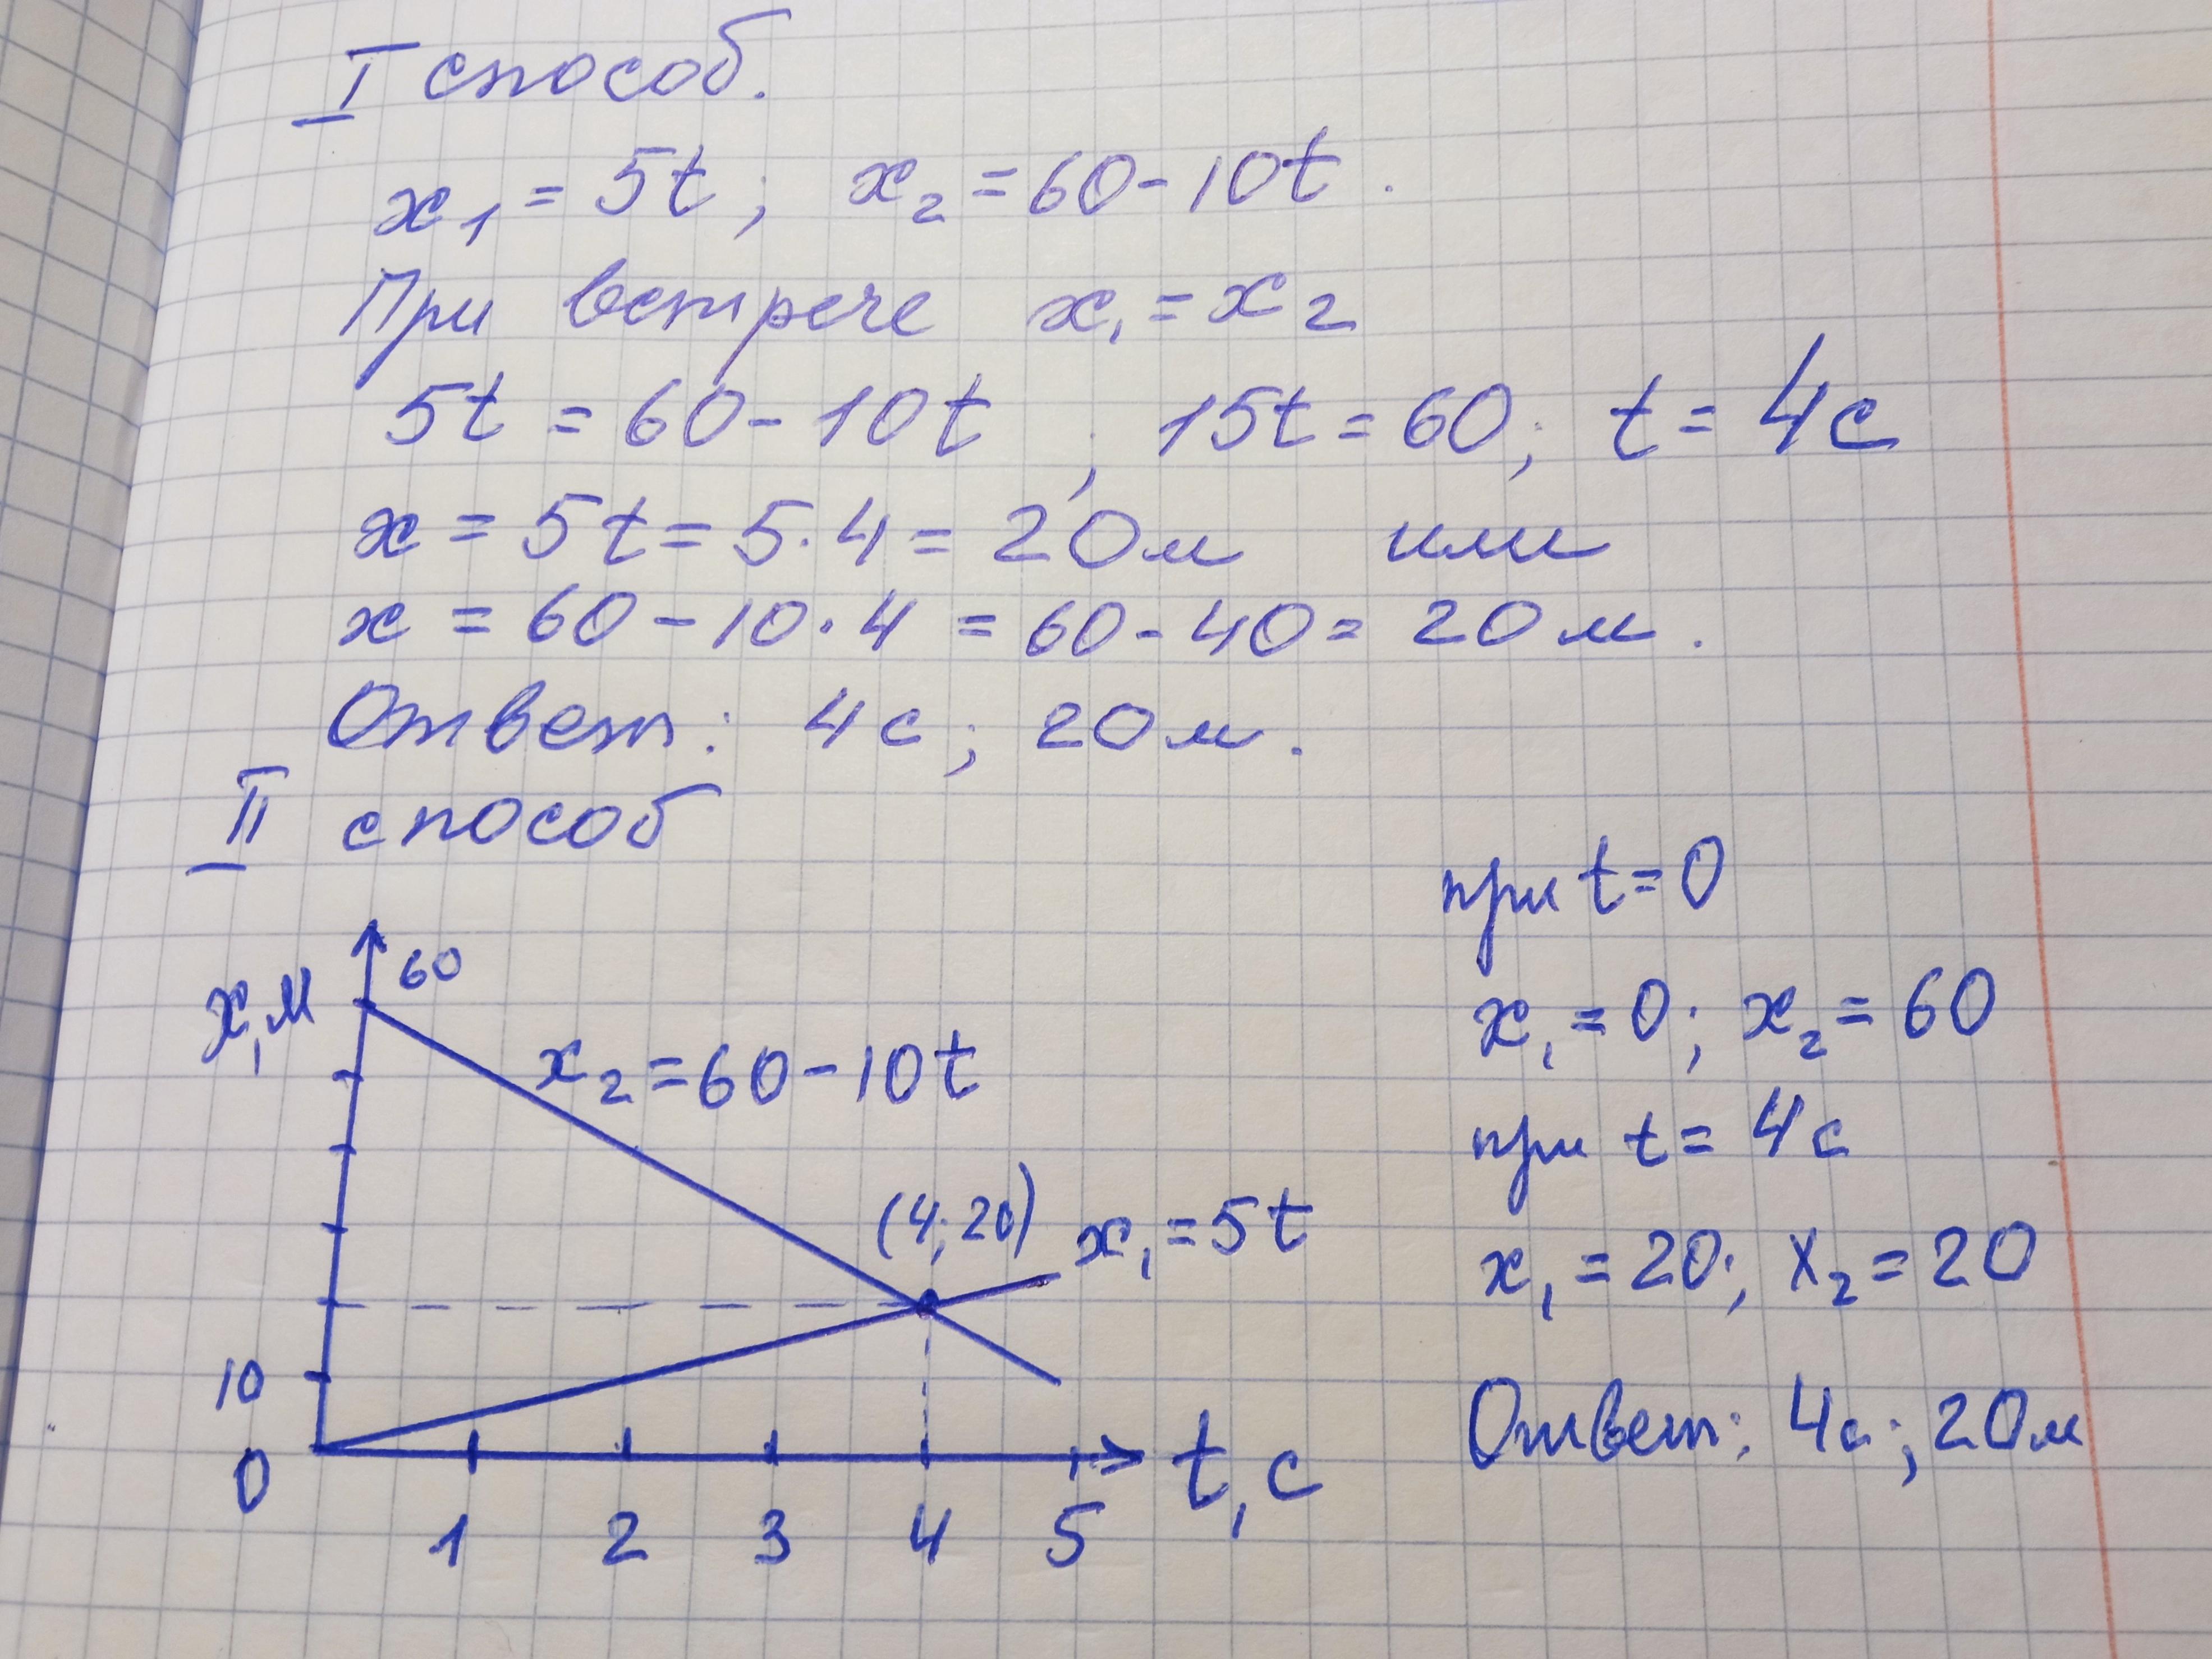 I способ.
x₁ = 5t; x₂ = 60 - 10t.
При встрече x₁ = x₂
5t = 60 - 10t, 15t = 60; t = 4с
x = 5t = 5·4 = 20м или
x = 60 - 10·4 = 60 - 40 = 20м.
Ответ: 4с; 20м.
II способ
x, м
60
x₂ = 60 - 10t
(4; 20)
x₁ = 5t
10
0
1 2 3 4 5
t, с
при t = 0
x₁ = 0; x₂ = 60
при t = 4с
x₁ = 20; x₂ = 20
Ответ: 4с; 20м